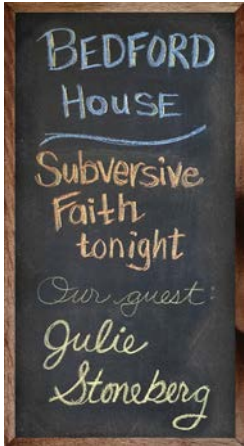 BEDFORD
HOUSE
Subversive
Faith
tonight
Our guest:
Julie
Stoneberg